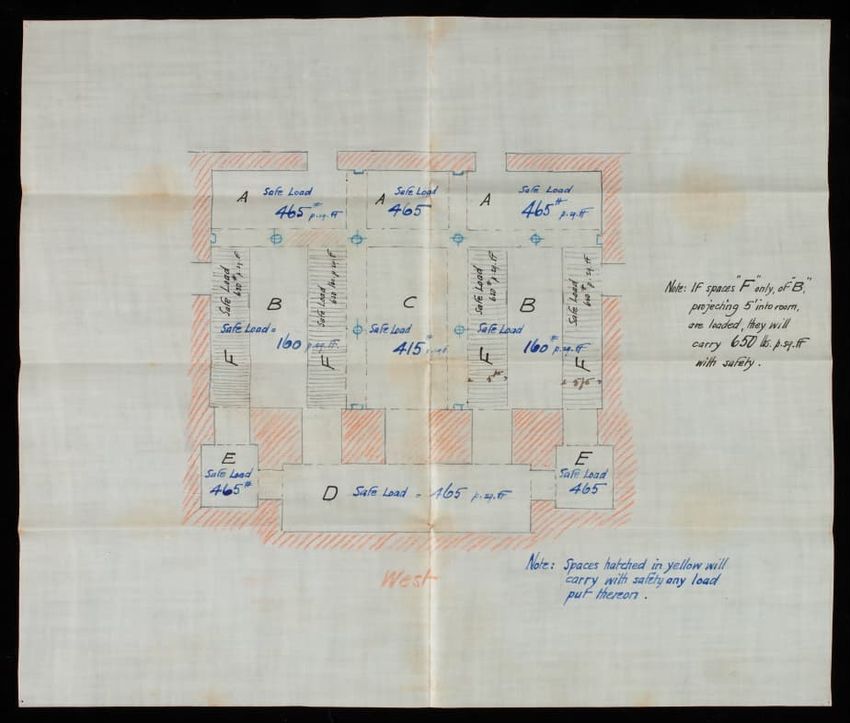 A Safe Load
465# p.sq.ft
A Safe Load
465
A Safe Load
465# p.sq.ft
Safe Load
650# p.sq.ft
F
B
Safe Load =
160 p.sq.ft.
Safe Load
650 lbs p.sq.ft
F
C
Safe Load
415# p.sq.ft
Safe Load
650# p.sq.ft
F
B
Safe Load
160# p.sq.ft
Safe Load
650# p.sq.ft
F
Note: If spaces "F" only, of "B",
projecting 5' into room,
are loaded, they will
carry 650 lbs. p.sq.ft
with safety.
E
Safe Load
465#
D Safe Load = 465 p.sq.ft
E
Safe Load
465
West
Note: Spaces hatched in yellow will
carry with safety any load
put thereon.